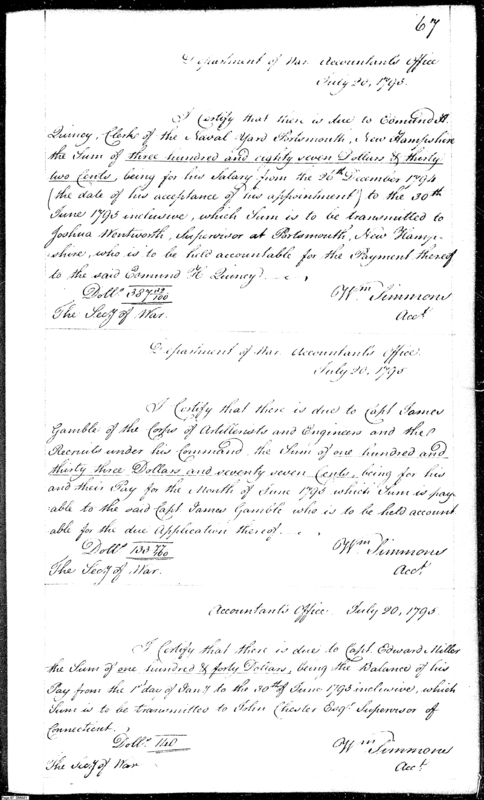 67
Department of War Accountants Office
July 20, 1795.
I Certify that there is due to Edmund H
Quincy, Clerk of the Naval Yard Portsmouth, New Hampshire
the Sum of three hundred and eighty seven Dollars & thirty
two Cents, being for his Salary from the 26th December 1794
(the date of his acceptance of his appointment) to the 30th
June 1795 inclusive, which Sum is to be transmitted to
Joshua Wentworth, Supervisor at Portsmouth, New Hamp-
shire, who is to be held accountable for the Payment thereof
to the said Edmund H Quincy.
Dolls. 387 32/100
Wm Simmons
The Secy of War.
Acct
Department of War Accountants Office.
July 20, 1795
I Certify that there is due to Capt James
Gamble of the Corps of Artillerists and Engineers and the
Recruits under his Command the Sum of one hundred and
thirty three Dollars and seventy seven Cents, being for his
and their Pay for the Month of June 1795 which Sum is pay
able to the said Capt James Gamble who is to be held account
able for the due Application thereof.
Dolls. 133 77/100
Wm Simmons
The Secy of War.
Acct
Accountants Office July 20, 1795.
I Certify that there is due to Capt. Edward Miller
the Sum of one hundred & forty Dollars, being the Balance of his
Pay from the 1st day of Jany to the 30th of June 1795 inclusive, which
Sum is to be transmitted to John Chester Esqr Supervisor of
Connecticut.
Dolls. 140
Wm Simmons
The Secy of War
Acct